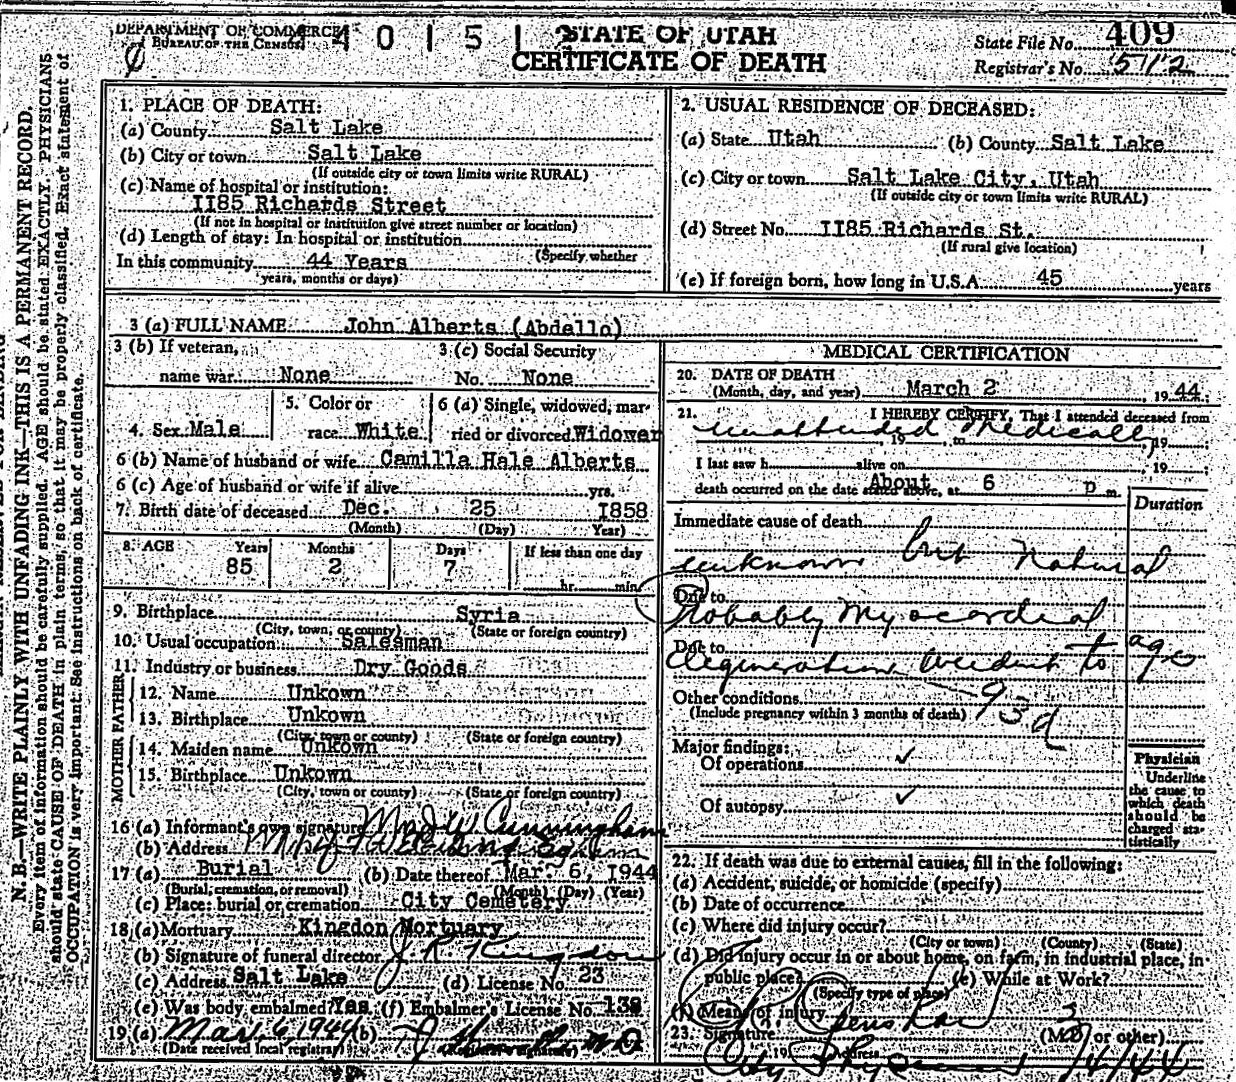 DEPARTMENT OF COMMERCE
BUREAU OF THE CENSUS
STATE OF UTAH
CERTIFICATE OF DEATH
State File No. 409
Registrar's No. 512
N. B.—WRITE PLAINLY WITH UNFADING INK—THIS IS A PERMANENT RECORD.
Every item of information should be carefully supplied. AGE should be stated EXACTLY. PHYSICIANS
should state CAUSE OF DEATH in plain terms, so that it may be properly classified. Exact statement of
OCCUPATION is very important. See instructions on back of certificate.
1. PLACE OF DEATH:
(a) County Salt Lake
(b) City or town Salt Lake
(If outside city or town limits write RURAL)
(c) Name of hospital or institution:
II85 Richards Street
(If not in hospital or institution give street number or location)
(d) Length of stay: In hospital or institution
(Specify whether
In this community 44 Years
years, months or days)
2. USUAL RESIDENCE OF DECEASED:
(a) State Utah (b) County Salt Lake
(c) City or town Salt Lake City, Utah
(If outside city or town limits write RURAL)
(d) Street No. II85 Richards St.
(If rural give location)
(e) If foreign born, how long in U.S.A. 45 years
3 (a) FULL NAME John Alberts (Abdello)
3 (b) If veteran,
name war None
3 (c) Social Security
No. None
4. Sex Male
5. Color or
race White
6 (a) Single, widowed, mar-
ried or divorced Widower
6 (b) Name of husband or wife Camilla Hale Alberts
6 (c) Age of husband or wife if alive yrs.
7. Birth date of deceased Dec. 25 I858
(Month) (Day) Year)
8. AGE Years Months Days If less than one day
85 2 7 hr. min.
9. Birthplace Syria
(City, town, or county) (State or foreign country)
10. Usual occupation Salesman
11. Industry or business Dry Goods
FATHER
12. Name Unkown
13. Birthplace Unkown
(City, town or county) (State or foreign country)
MOTHER
14. Maiden name Unkown
15. Birthplace Unkown
(City, town or county) (State or foreign country)
16 (a) Informant's own signature Cunningham
(b) Address
17 (a) Burial (b) Date thereof Mar. 6, I944
(Burial, cremation, or removal) (Month) (Day) (Year)
(c) Place: burial or cremation City Cemetery
18 (a) Mortuary Kingdon Mortuary
(b) Signature of funeral director J. R. Kingdon
(c) Address Salt Lake (d) License No. 23
(e) Was body embalmed? Yes (f) Embalmer's License No.
19 (a) Mar. 6, 1944 (b) M D
(Date received local registrar) (Registrar's signature)
MEDICAL CERTIFICATION
20. DATE OF DEATH
(Month, day, and year) March 2, 19 44
21. I HEREBY CERTIFY, That I attended deceased from
unattended medically, 19 , to , 19
I last saw h alive on , 19
death occurred on the date stated above, at About 6 p m.
Duration
Immediate cause of death
unknown but Natural
Due to
Probably Myocardial
Due to
degeneration incident to age
Other conditions 93d
(Include pregnancy within 3 months of death)
Major findings:
Of operations ✓
Of autopsy ✓
Physician
Underline
the cause to
which death
should be
charged sta-
tistically
22. If death was due to external causes, fill in the following:
(a) Accident, suicide, or homicide (specify)
(b) Date of occurrence
(c) Where did injury occur?
(City or town) (County) (State)
(d) Did injury occur in or about home, on farm, in industrial place, in
public place? (e) While at Work?
(Specify type of place)
(f) Means of injury
23. Signature (M.D. or other)
City Address 3/4/44